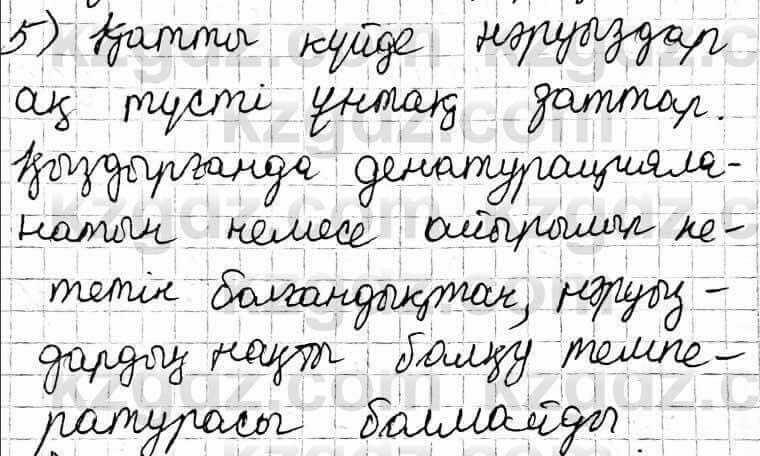 5) Қатты күйде нәруыздар
ақ түсті ұнтақ заттар.
Қыздырғанда денатурацияла-
натын немесе айырылып ке-
тетін болғандықтан, нәруыз-
дардың нақты балқу темпе-
ратурасы болмайды.